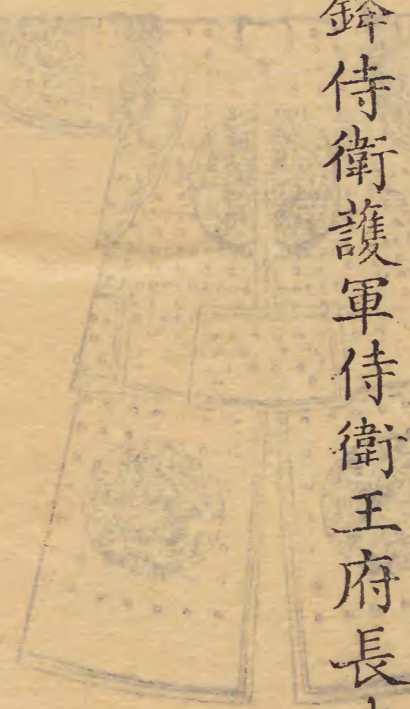 侍衛護軍侍衛王府長